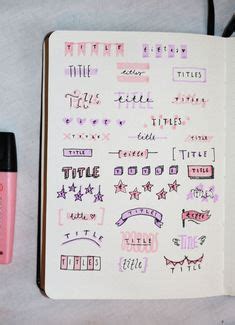 TITLE
TITLE titles TITLES
TITLE title TITLES
TITLES
TITLE title TITLE
TITLE title [TITLE]
TITLE TITLE
{title} TITLES TITLE
TITLE TITLE TITLE
TITLES {title} TITLE